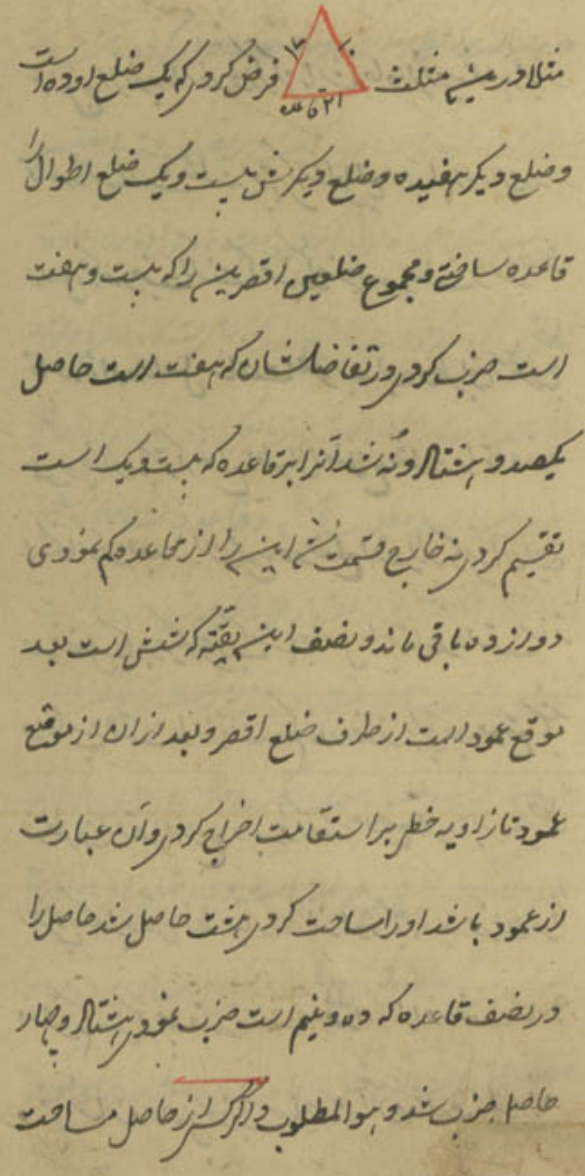 مثلا درین مثلث ۱۰ ۱۷ ۲۱ قاعده فرض کردی که یک ضلع او ده است
و ضلع دیگر هفیده و ضلع دیگرش بیست و یک ضلع اطول را
قاعده ساختی و مجموع ضلعین اقصرین را که بیست و هفت
است ضرب کردی در تفاضلشان که هفت است حاصل
یکصد و هشتاد و نه شد آنرا بر قاعده که بیست و یک است
تقسیم کردی نه خارج قسمت شد این را از قاعده کم نمودی
دوازده باقی ماند و نصف این بقیّه که شش است بعد
موقع عمود است از طرف ضلع اقصر و بعد ازان از موقع
عمود تا زاویه خطی بر استقامت اخراج کردی و آن عبارت
از عمود باشد او را مساحت کردی هشت حاصل شد حاصل را
در نصف قاعده که ده و نیم است ضرب نمودی هشتاد و چهار
حاصل ضرب شد و هو المطلوب و اگر کسی از حاصل مساحت